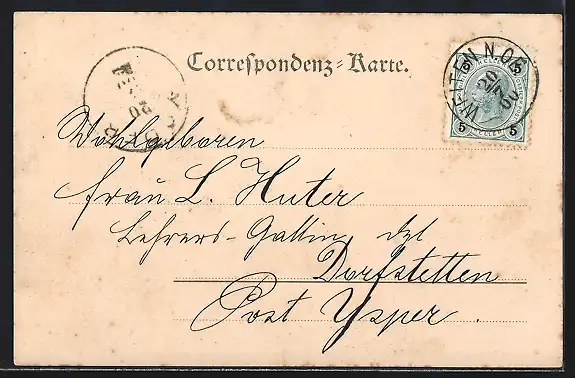 Correspondenz-Karte.
WEITEN N.OE
20
5 5
5 5
20
Wohlgeboren
Frau L. Huter
Lehrers-Gattin
Dorfstetten
Post Ysper.